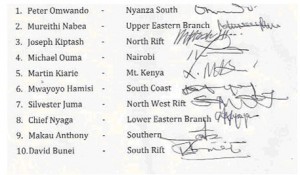 1. Peter Omwando - Nyanza South
2. Mureithi Nabea - Upper Eastern Branch
3. Joseph Kiptash - North Rift
4. Michael Ouma - Nairobi
5. Martin Kiarie - Mt. Kenya
6. Mwayoyo Hamisi - South Coast
7. Silvester Juma - North West Rift
8. Chief Nyaga - Lower Eastern Branch
9. Makau Anthony - Southern
10. David Bunei - South Rift